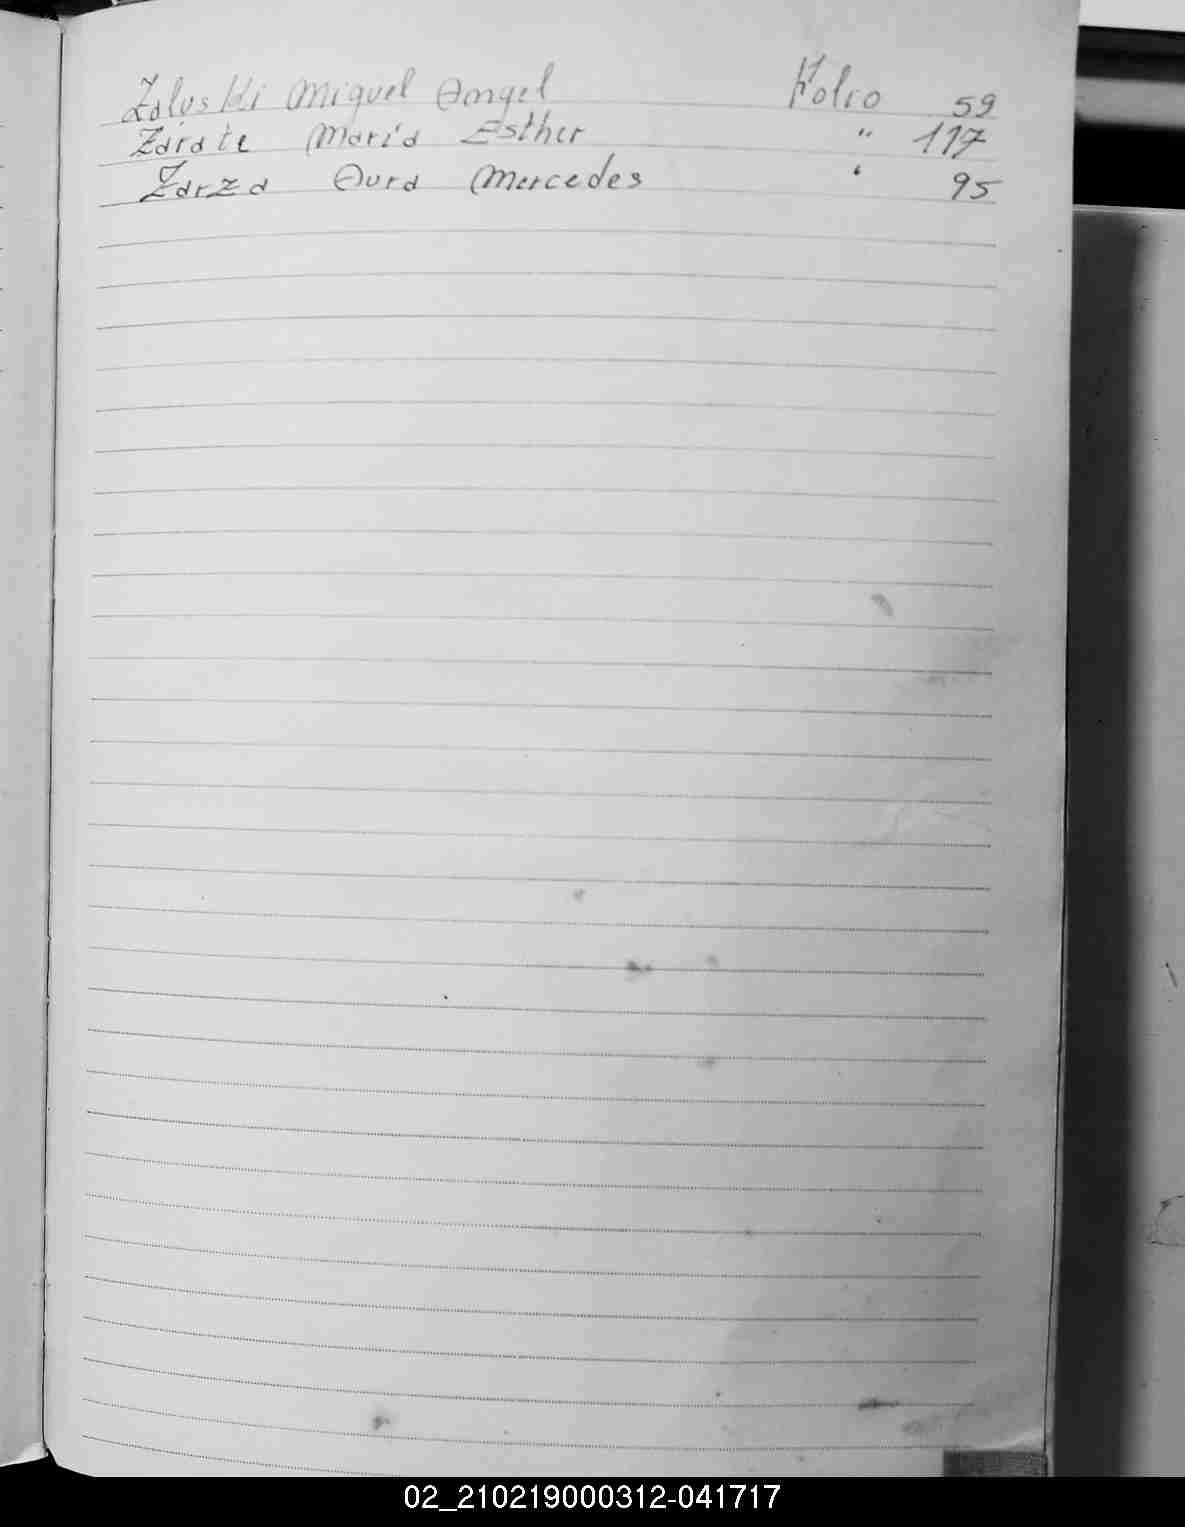 Zaluski Miguel Angel Folio 59
Zarate Maria Esther " 117
Zarza Aura Mercedes " 95
02_210219000312-041717